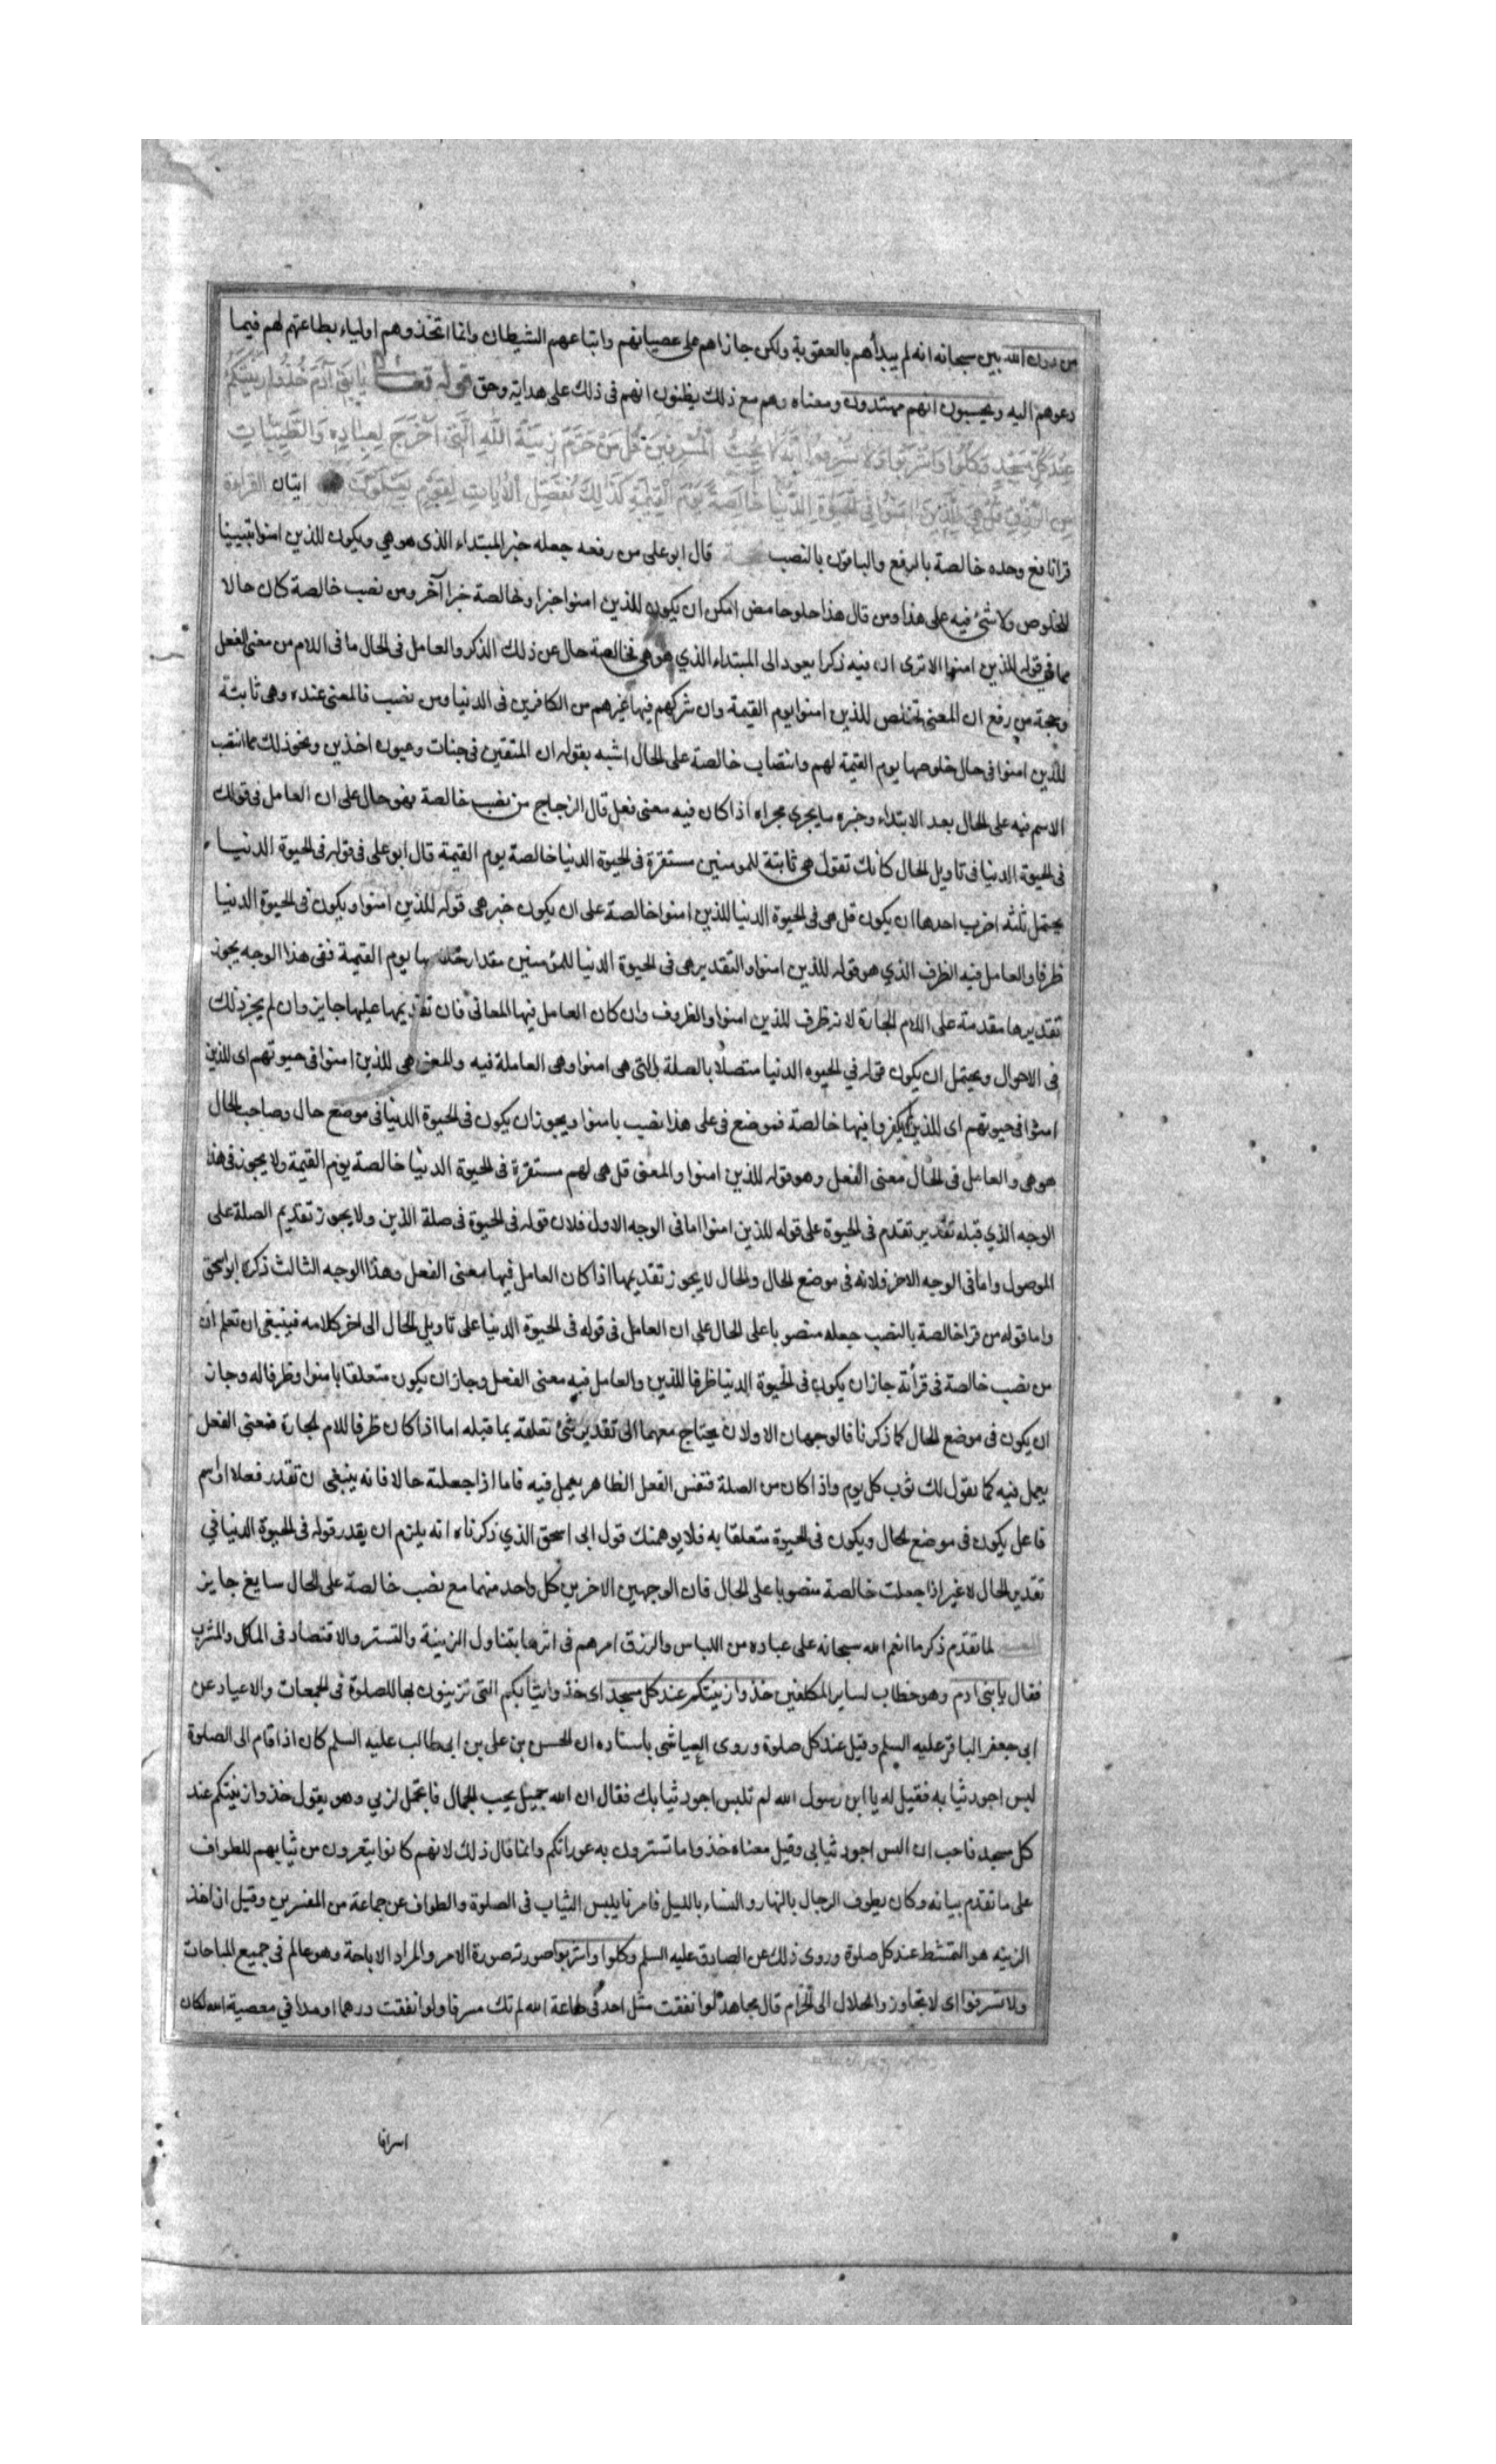 من دون الله بين سبحانه انه لم يبدأهم بالعقوبة ولكن جازاهم على عصيانهم واتباعهم الشيطان وانما اتخذوهم اولياء بطاعتهم لهم فيما
دعوهم اليه ويحسبون انهم مهتدون ومعناه وهم مع ذلك يظنون انهم فى ذلك على هداية وحق قوله تعالى يَا بَنِى آدَمَ خُذُوا زِينَتَكُمْ
عِنْدَ كُلِّ مَسْجِدٍ وَكُلُوا وَاشْرَبُوا وَلَا تُسْرِفُوا اِنَّهُ لَا يُحِبُّ الْمُسْرِفِينَ قُلْ مَنْ حَرَّمَ زِينَةَ اللهِ الَّتِى اَخْرَجَ لِعِبَادِهِ وَالطَّيِّبَاتِ
مِنَ الرِّزْقِ قُلْ هِيَ لِلَّذِينَ امَنُوا فِى الْحَيٰوةِ الدُّنْيَا خَالِصَةً يَوْمَ الْقِيٰمَةِ كَذَلِكَ نُفَصِّلُ الْاٰيَاتِ لِقَوْمٍ يَعْلَمُونَ ايتان القراءة
قرا نافع وحده خالصة بالرفع والباقون بالنصب قال ابو على من رفعه جعله خبر المبتداء الذى هو هي ويكون للذين امنوا تبيينا
للخلوص ولا شئ فيه على هذا ومن قال هذا حلو حامض امكن ان يكون للذين امنوا خبرا وخالصة خبرا آخر ومن نصب خالصة كان حالا
مما في قوله للذين امنوا الا ترى ان فيه ذكرا يعود الى المبتداء الذي هو هى فخالصة حال عن ذلك الذكر والعامل فى الحال ما فى اللام من معنى الفعل
وحجة من رفع ان المعنى تخلص للذين امنوا يوم القيمة وان شركهم فيها غيرهم من الكافرين فى الدنيا ومن نصب فالمعنى عنده وهى ثابتة
للذين امنوا فى حال خلوصها يوم القيمة لهم وانتصاب خالصة على الحال اشبه بقوله ان المتقين فى جنات وعيون اخذين ونحو ذلك مما انتصب
الاسم فيه على الحال بعد الابتداء وخبره ما يجرى مجراه اذا كان فيه معنى فعل قال الزجاج من نصب خالصة فهو حال على ان العامل فى قولك
فى الحيوة الدنيا فى تاويل الحال كانك تقول هى ثابتة للمومنين مستقرة فى الحيوة الدنيا خالصة يوم القيمة قال ابو على فى قوله فى الحيوة الدنيا
يحتمل ثلثه اضرب احدها ان يكون قل هى فى الحيوة الدنيا للذين امنوا خالصة على ان يكون خبر هى قوله للذين امنوا ويكون فى الحيوة الدنيا
ظرفا والعامل فيه الظرف الذي هو قوله للذين امنوا والتقدير هى فى الحيوة الدنيا للمؤمنين مقدار خلوصها يوم القيمة ففى هذا الوجه يجوز
تقديرها مقدمة على اللام الجارة لانه ظرف للذين امنوا والظروف وان كان العامل فيها المعانى فان تقديمها عليها جايز وان لم يجز ذلك
فى الاحوال ويحتمل ان يكون قوله في الحيوه الدنيا متصلا بالصلة التى هى امنوا وهى العاملة فيه والمعنى هى للذين امنوا فى حيوتهم اى للذين
امنوا فى حيوتهم اى للذين لم يكفروا فيها خالصة فموضع فى على هذا نصب بامنوا ويجوز ان يكون فى الحيوة الدنيا فى موضع حال وصاحب الحال
هو هى والعامل فى الحال معنى الفعل وهو قوله للذين امنوا والمعنى قل هى لهم مستقرة فى الحيوة الدنيا خالصة يوم القيمة ولا يجوز فى هذا
الوجه الذي قبله تقدير تقدم فى الحيوة على قوله للذين امنوا اما فى الوجه الاول فلان قوله فى الحيوة فى صلة الذين ولا يجوز تقديم الصلة على
الموصول واما فى الوجه الاخر فلانه فى موضع الحال والحال لا يجوز تقديمها اذا كان العامل فيها معنى الفعل وهذا الوجه الثالث ذكره ابو اسحق
واما قوله من قرا خالصة بالنصب جعله منصوبا على الحال على ان العامل فى قوله فى الحيوة الدنيا على تاويل الحال الى اخر كلامه فينبغى ان تعلم ان
من نصب خالصة فى قرأته جاز ان يكون فى الحيوة الدنيا ظرفا للذين والعامل فيه معنى الفعل وجاز ان يكون متعلقا بامنوا وظرفا له وجاز
ان يكون فى موضع الحال كما ذكرنا فالوجهان الاولان يحتاج معهما الى تقدير شئ تعلقه بما قبله اما اذا كان ظرفا للام الجارة فمعنى الفعل
يعمل فيه كما تقول لك ثوب كل يوم واذا كان من الصلة فنفس الفعل الظاهر يعمل فيه فاما اذا جعلته حالا فانه ينبغى ان تقدر فعلا او اسم
فاعل يكون فى موضع الحال ويكون فى الحيوة متعلقا به فلا يوهمنك قول ابى اسحق الذي ذكرناه انه يلزم ان يقدر قوله فى الحيوة الدنيا في
تقدير الحال لا غير اذا جعلت خالصة منصوبا على الحال فان الوجهين الاخرين كل واحد منهما مع نصب خالصة على الحال سايغ جايز
لما تقدم ذكر ما انعم الله سبحانه على عباده من اللباس والرزق امرهم فى اثرها بتناول الزينة والتستر والاقتصاد فى الماكل والمشرب
فقال يا بنى ادم وهو خطاب لساير المكلفين خذوا زينتكم عند كل مسجد اى خذوا ثيابكم التى تزينون بها للصلوة فى الجمعات والاعياد عن
ابى جعفر الباقر عليه السلم وقيل عند كل صلوة وروى العياشى باسناده ان الحسن بن على بن ابى طالب عليه السلم كان اذا قام الى الصلوة
لبس اجود ثيابه فقيل له يا ابن رسول الله لم تلبس اجود ثيابك فقال ان الله جميل يحب الجمال فاتجمل لربي وهو يقول خذوا زينتكم عند
كل مسجد فاحب ان البس اجود ثيابى وقيل معناه خذوا ما تسترون به عوراتكم وانما قال ذلك لانهم كانوا يتعرون من ثيابهم للطواف
على ما تقدم بيانه وكان يطوف الرجال بالنهار والنساء بالليل فامرنا بلبس الثياب فى الصلوة والطواف عن جماعة من المفسرين وقيل ان اخذ
الزينه هو التمشط عند كل صلوة وروى ذلك عن الصادق عليه السلم وكلوا واشربوا صورته صورة الامر والمراد الاباحة وهو عالم فى جميع المباحات
ولا تسرفوا اى لا تتجاوزوا الحلال الى الحرام قال مجاهد لو انفقت مثل احد فى طاعة الله لم تك مسرفا ولو انفقت درهما او مدا في معصية الله لكان
اسرافا